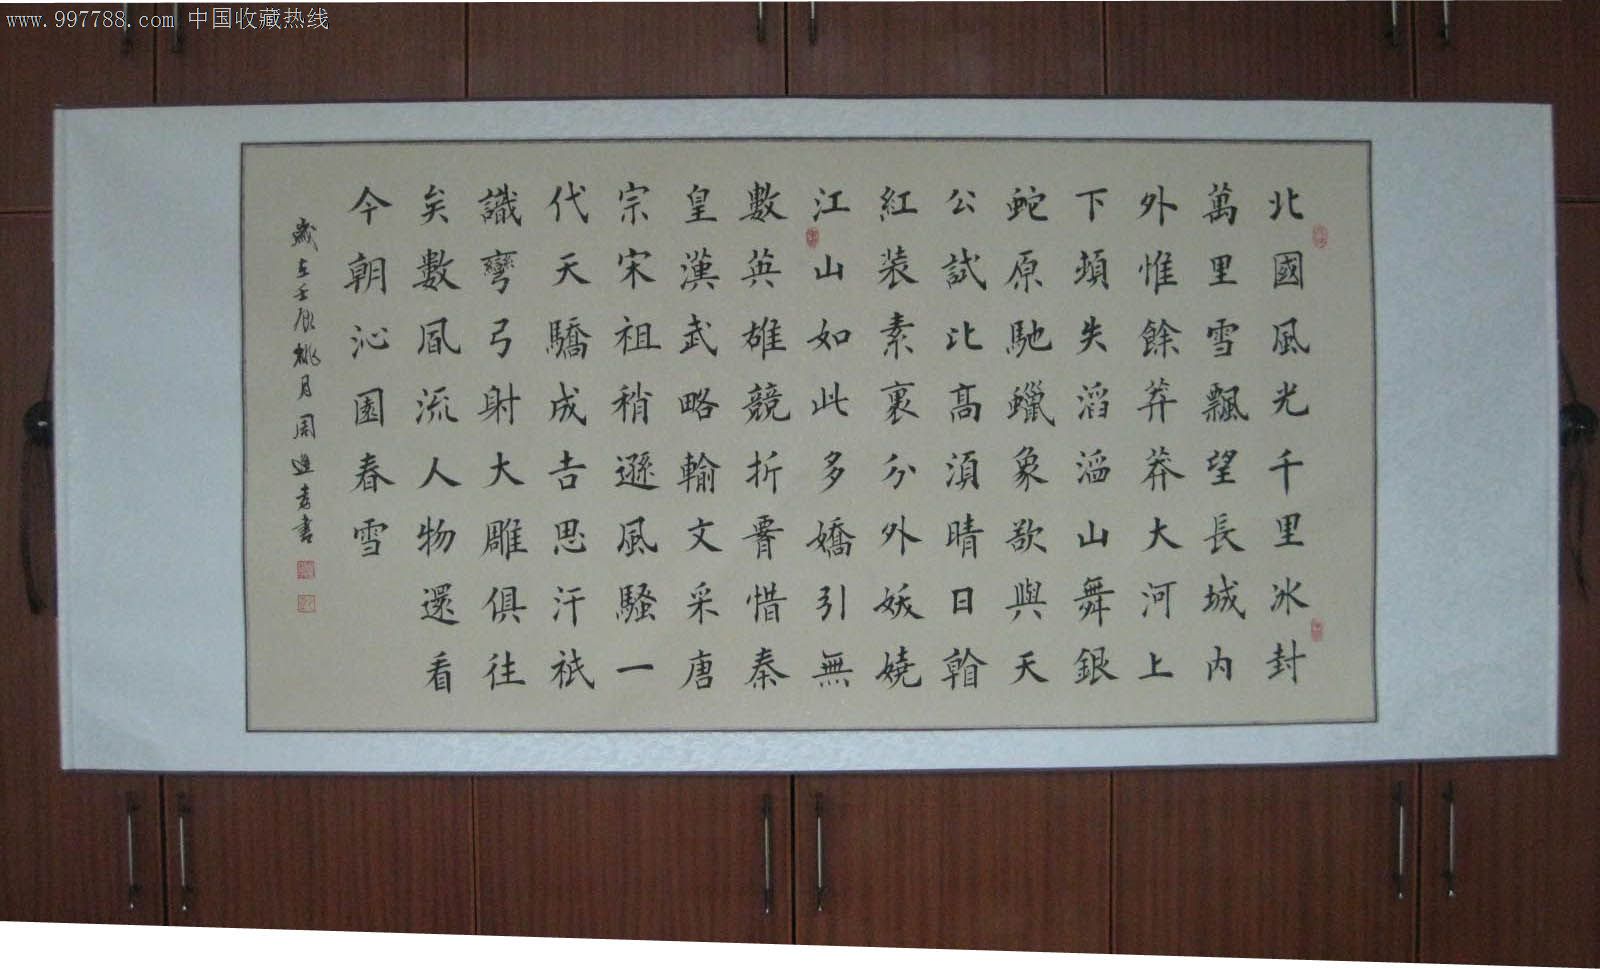 www.997788.com 中国收藏热线
北國風光千里冰封
萬里雪飄望長城內
外惟餘莽莽大河上
下頓失滔滔山舞銀
蛇原馳蠟象欲與天
公試比高須晴日看
紅装素裹分外妖嬈
江山如此多嬌引無
數英雄競折腰惜秦
皇漢武略輸文采唐
宗宋祖稍遜風騷一
代天驕成吉思汗祇
識彎弓射大雕俱往
矣數風流人物還看
今朝沁園春雪
歲在壬辰桃月周進書